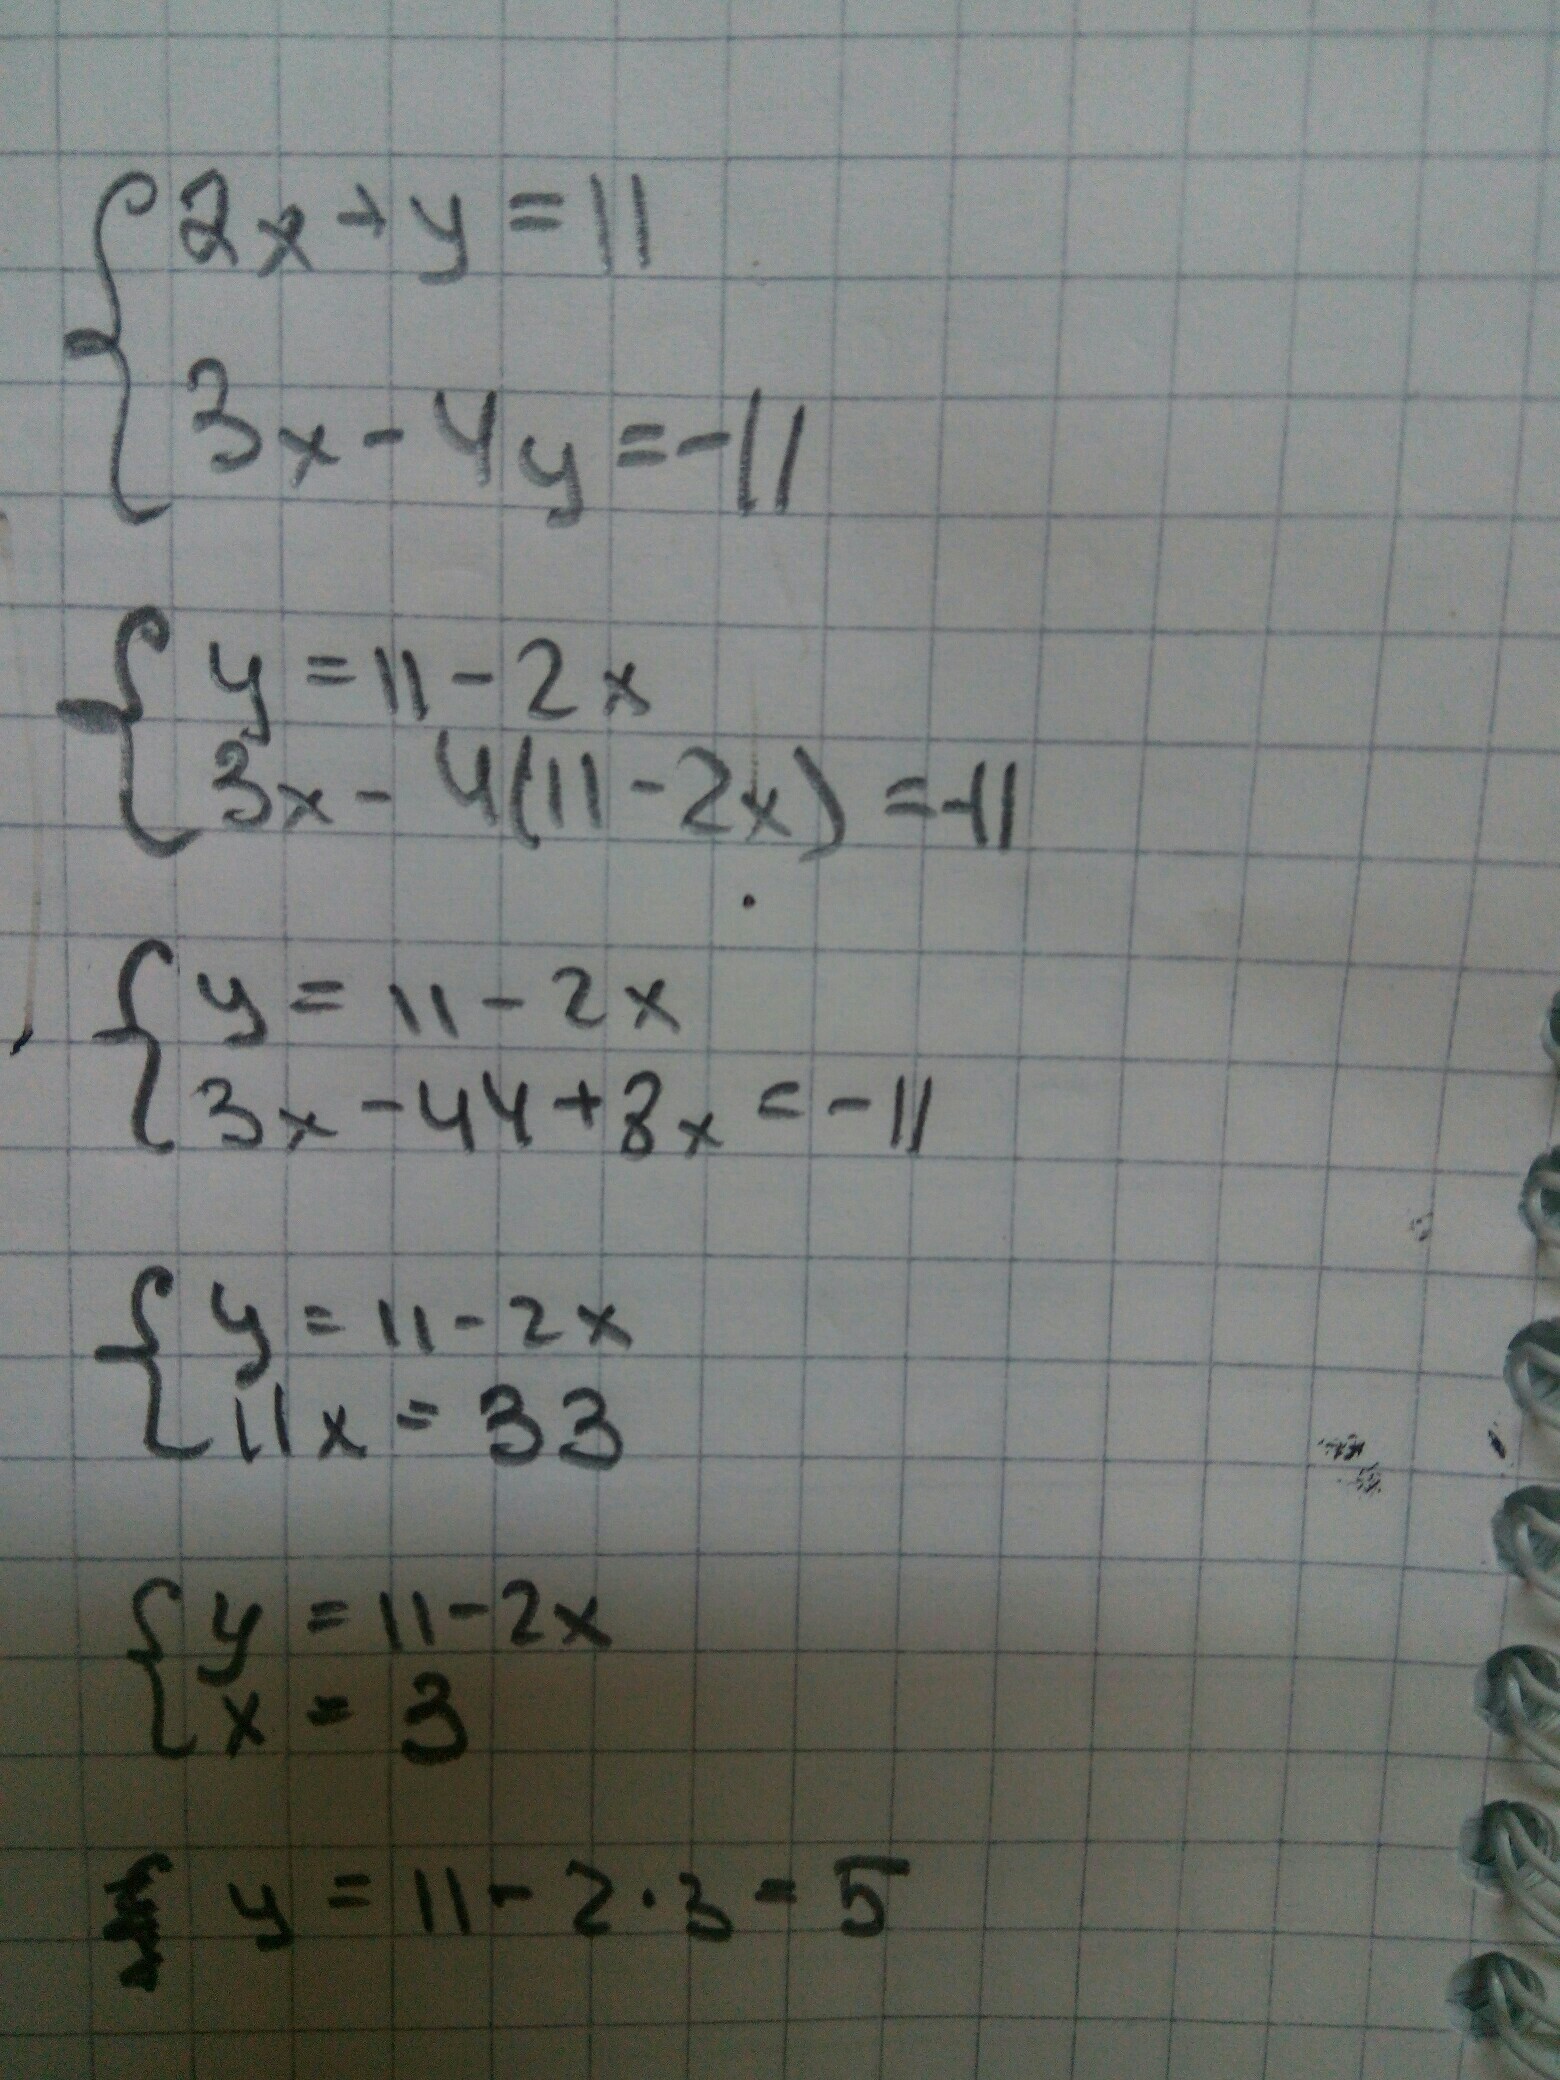 2x+y=11
3x-4y=-11
y=11-2x
3x-4(11-2x)=-11
y=11-2x
3x-44+8x=-11
y=11-2x
11x=33
y=11-2x
x=3
y=11-2·3=5